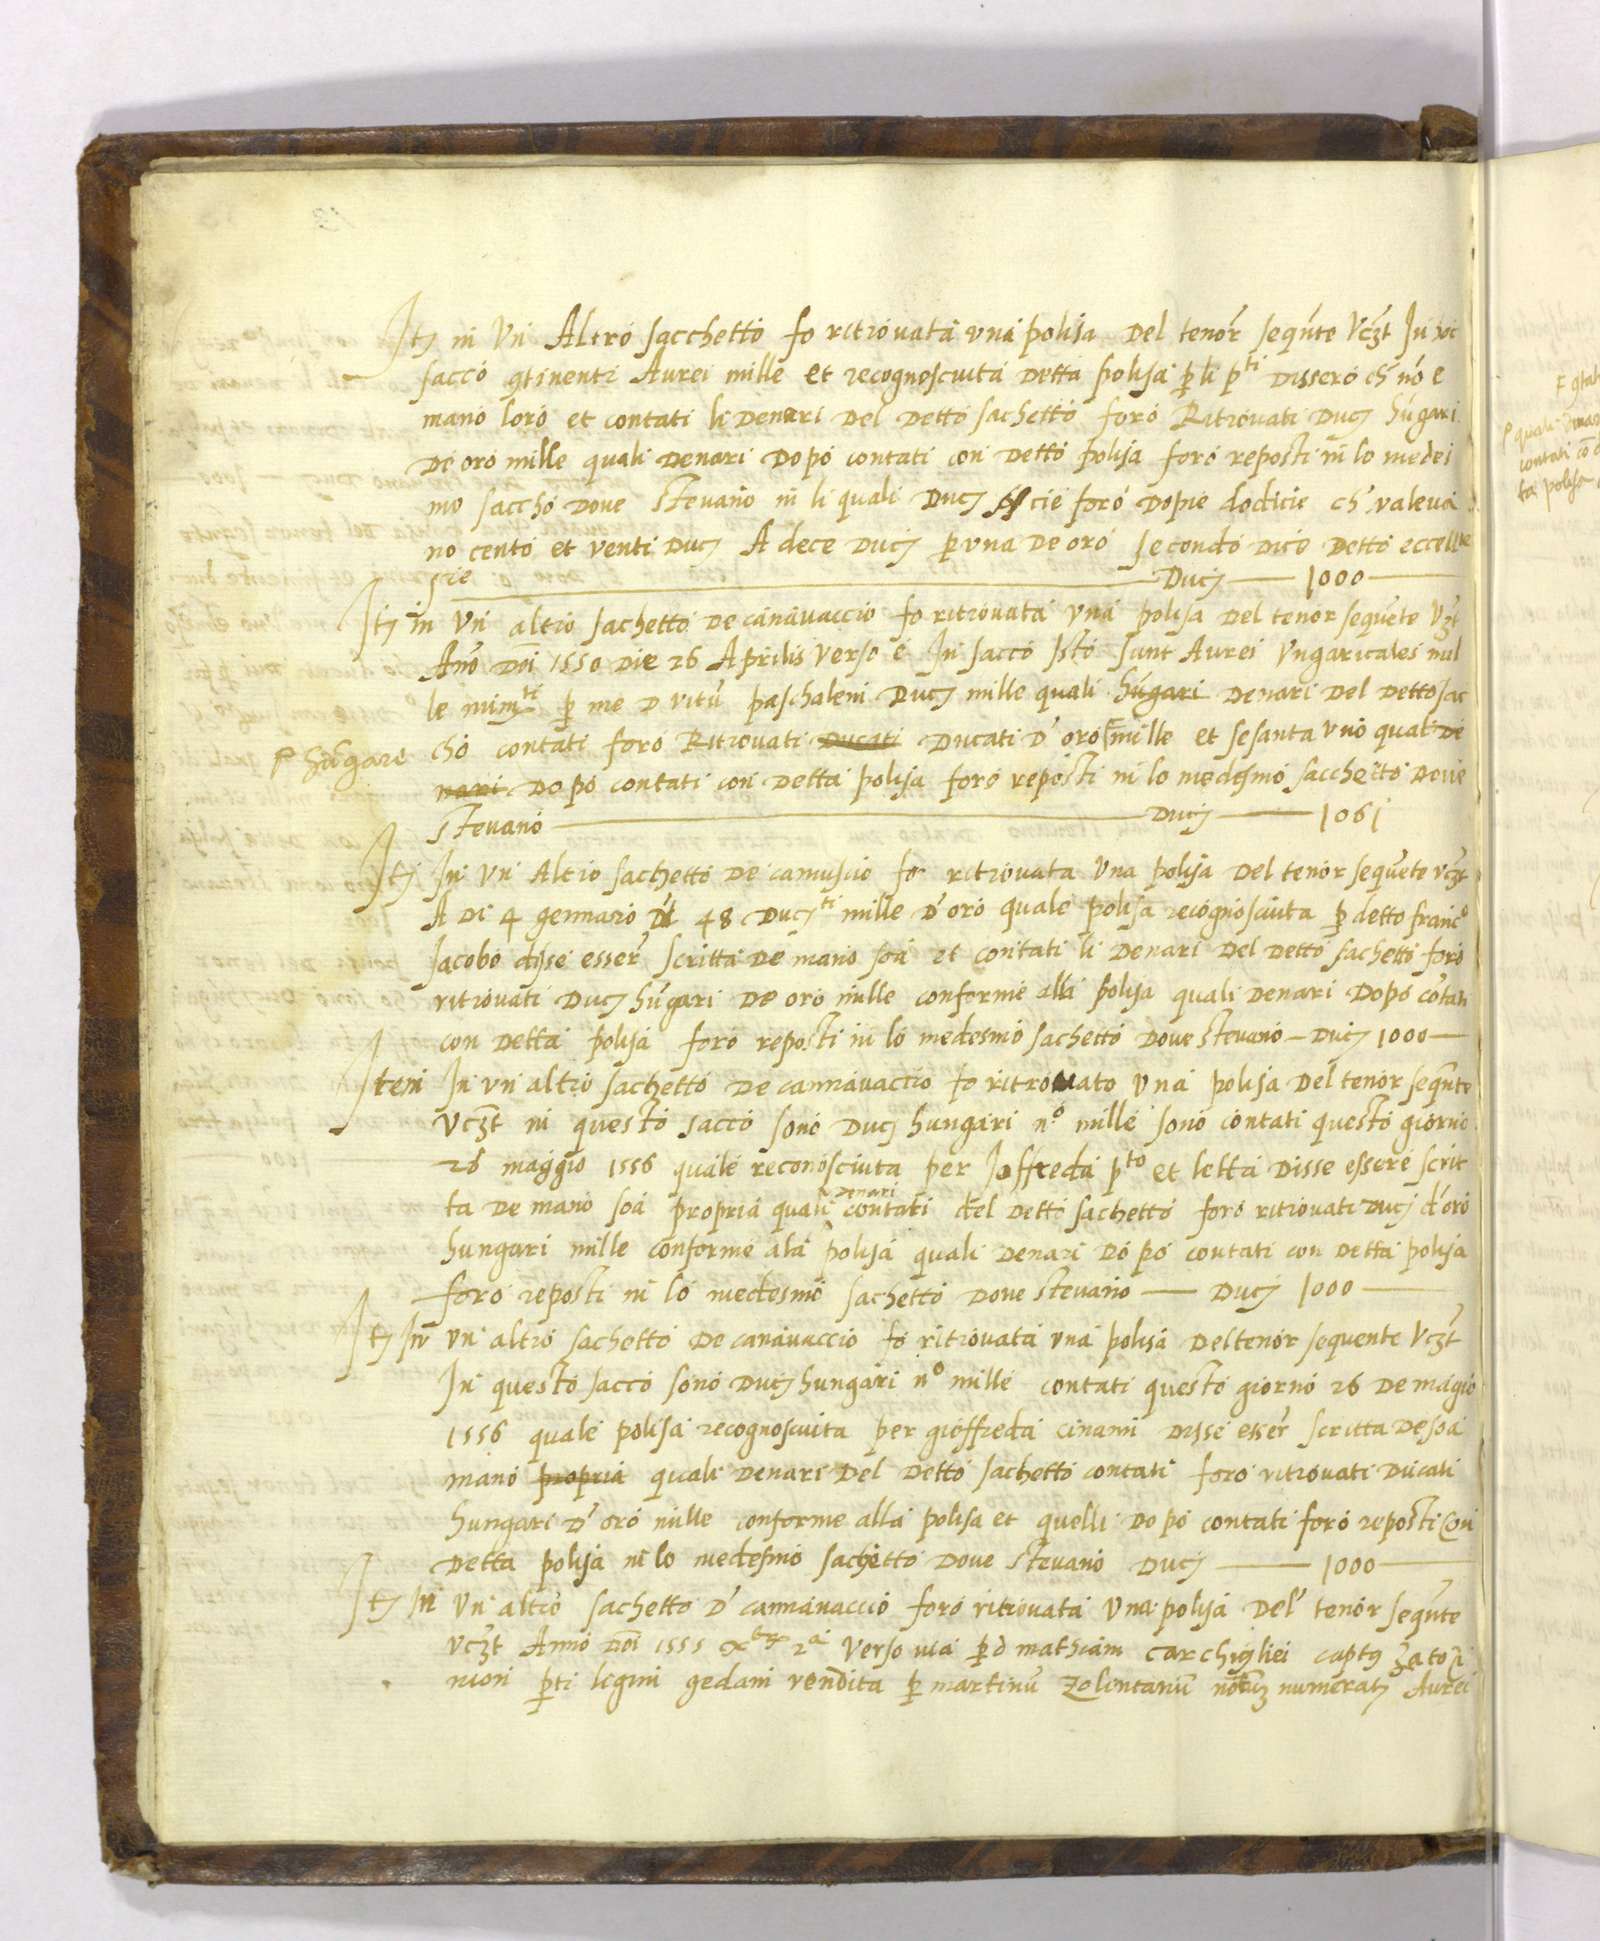 Itȝ in Un Altro sacchetto fo ritrovata una polisa del tenor sequente vczt In
sacco qtinenti Aurei mille et recognosciuta detta polisa p li pti dissero ch no e
mano loro et contati li denari del detto sachetto foro Ritrovati Ducȝ hu͂gari
de oro mille quali denari dopo contati con detto polisa foro reposti in lo medes
mo saccho dove stevano in li quali Ducȝ cie foro dopie dodicie ch valeva
no cento et venti Ducȝ A dece Ducȝ p una de oro secondo dice detto eccellte
scie Ducȝ 1000
Itȝ in Un altro sachetto de canavaccio fo ritrovata una polisa del tenor sequete vczt
Ano Doi 1550 die 26 Aprilis verso e In sacco Isto sunt Aurei Ungaricales mil
le p me D vitu paschaleni Ducȝ mille quali hugari denari del detto sac
ꝑ hu͂gare
cho contati foro Ritrovati Ducati Ducati d'oro mille et sesanta uno quali de
nari dopo contati con detta polisa foro reposti in lo medesmo sacchetto dove
stevano Ducȝ 1061
Itȝ In un Altro sachetto de camuscio fo ritrovata una polisa del tenor sequete vczt
A di 4 gennaro 48 Ducȝ mille d'oro quale polisa recognosciuta p detto franco
Jacobo disse esser scritta de mano soa et contati li denari del detto sachetto foro
ritrovati Ducȝ hu͂gari de oro mille conforme alla polisa quali denari dopo cotati
con detta polisa foro reposti in lo medesmo sachetto dove stevano Ducȝ 1000
Item In un altro sachetto de cannavaccio fo ritrovato una polisa del tenor seqnte
vczt in questo sacco sono Ducȝ hungari no mille sono contati questo giorno
26 maggio 1556 quale reconosciuta per Joffreda pto et letta disse essere scrit
ta de mano soa propria quali denari contati del detto sachetto foro ritrovati Ducȝ d'oro
hungari mille conforme ala polisa quali denari dopo contati con detta polisa
foro reposti in lo medesmo sachetto dove stevano Ducȝ 1000
Itȝ In un altro sachetto de canavaccio fo ritrovata una polisa del tenor sequente vczt
In questo sacco sono Ducȝ hungari no mille contati questo giorno 26 de magio
1556 quale polisa recognosciuta per gioffreda cinami disse esser scritta de soa
mano propria quali denari del detto sachetto contati foro ritrovati Ducati
hungari d'oro mille conforme alla polisa et quelli dopo contati foro reposti con
detta polisa in lo medesmo sachetto dove stevano Ducȝ 1000
Itȝ In un altro sachetto d' cannavaccio foro ritrovata una polisa del tenor seqnte
vczt Anno Doi 1555 xbr 2a verso via p d mathiam
pti legini gedani vendita p martinu Zolentanu numeratȝ Aurei